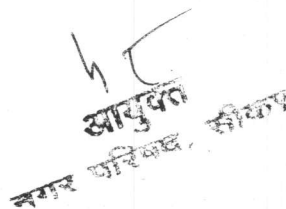 आयुक्त
नगर परिषद, सीकर